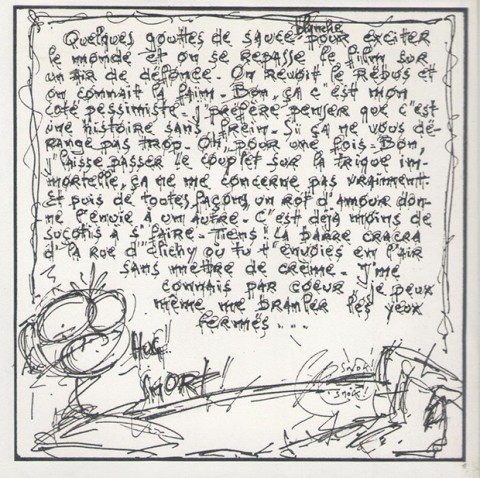 Quelques gouttes de sauce blanche pour exciter
le monde et on se repasse le film sur
un air de défonce. On revoit le rébus et
on connait la faim. Bon, ça c'est mon
côté pessimiste. J'préfère penser que c'est
une histoire sans frein. Si ça ne vous dé-
range pas trop. Oh, pour une fois. Bon,
j'laisse passer le couplet sur la trique im-
mortelle, ça ne me concerne pas vraiment.
Et puis de toutes façons un rot d'amour don-
ne l'envie à un autre. C'est déjà moins de
suçotis à s'faire. Tiens! la barre cracra
d'la rue d'Clichy où tu t'envoies en l'air
sans mettre de crème. J'me
connais par coeur je peux
même me branler les yeux
fermés...